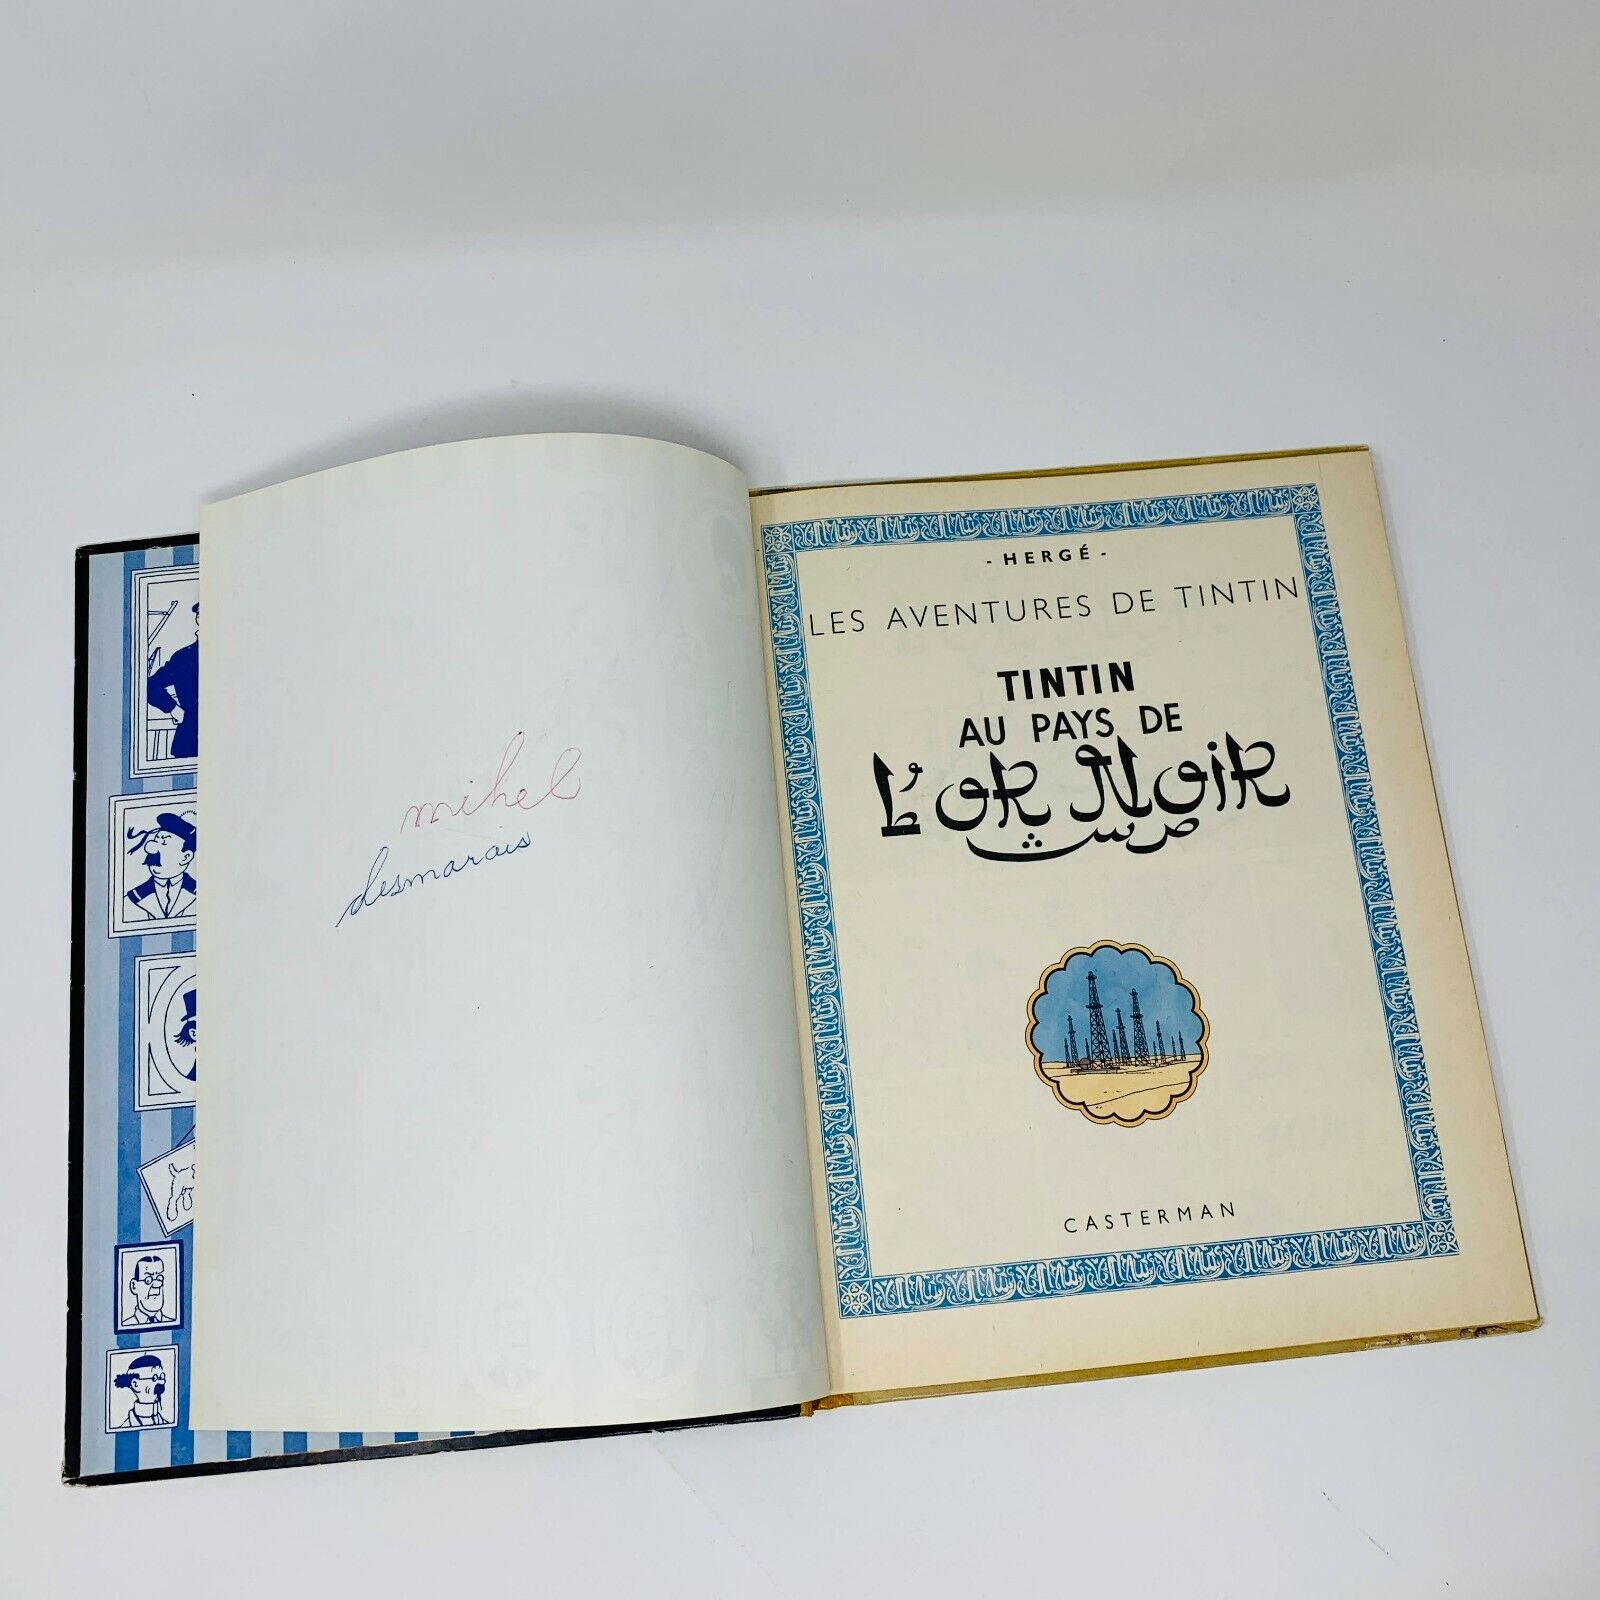 mihel
desmarais
- HERGÉ -
LES AVENTURES DE TINTIN
TINTIN
AU PAYS DE
L'OR NOIR
CASTERMAN